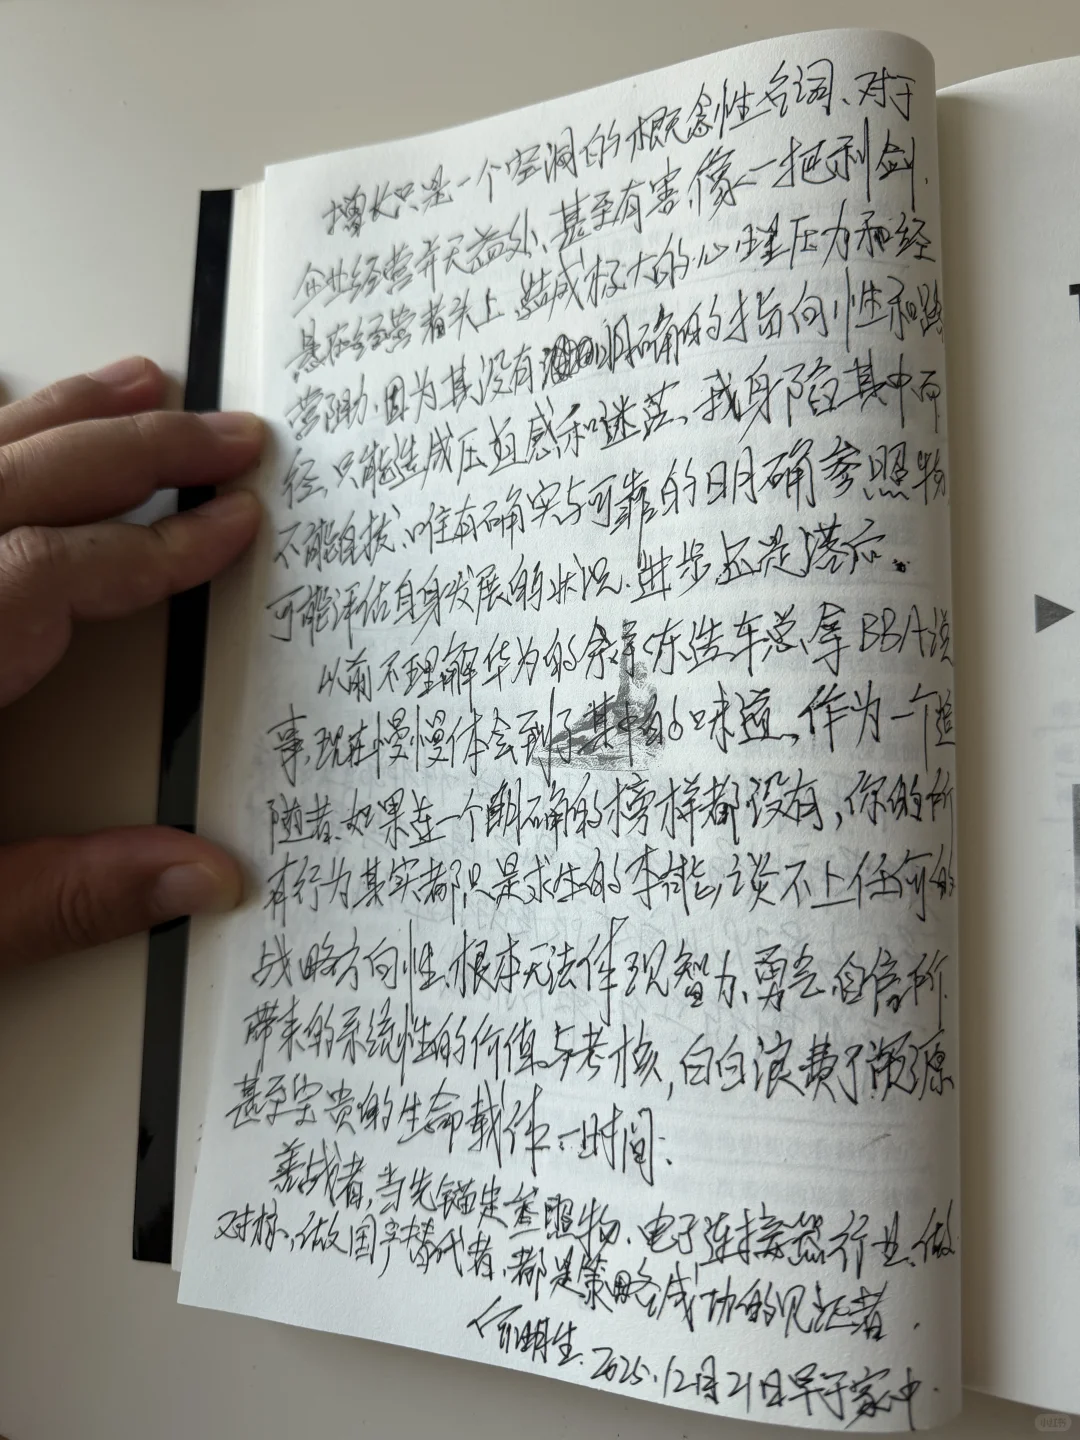 增长只是一个空洞的概念性名词、对于
企业经营并无益处、甚至有害,像一把利剑.
悬在经营者头上,造成极大的心理压力和经
营阻力.因为其没有明确的指向性和路
径,只能造成压迫感和迷茫、我身陷其中而
不能自拔、唯有确实与可靠的明确参照物
可能评估自身发展的状况.进步还是落后.
以前不理解华为的余承东造车总拿BBA说
事,现在慢慢体会到了其中的味道,作为一个追
随者、如果连一个明确的榜样都没有,你的所
有行为其实都只是求生的本能,谈不上任何的
战略方向性,根本无法体现智力、勇气、自信所
带来的系统性的价值与考核,白白浪费了资源
甚至宝贵的生命载体:时间:
善战者,当先锚定参照物.电子连接器行业、做
对标,做国产替代者,都是策略成功的见证者.
明生.2025.12月21日早于家中.
小红书